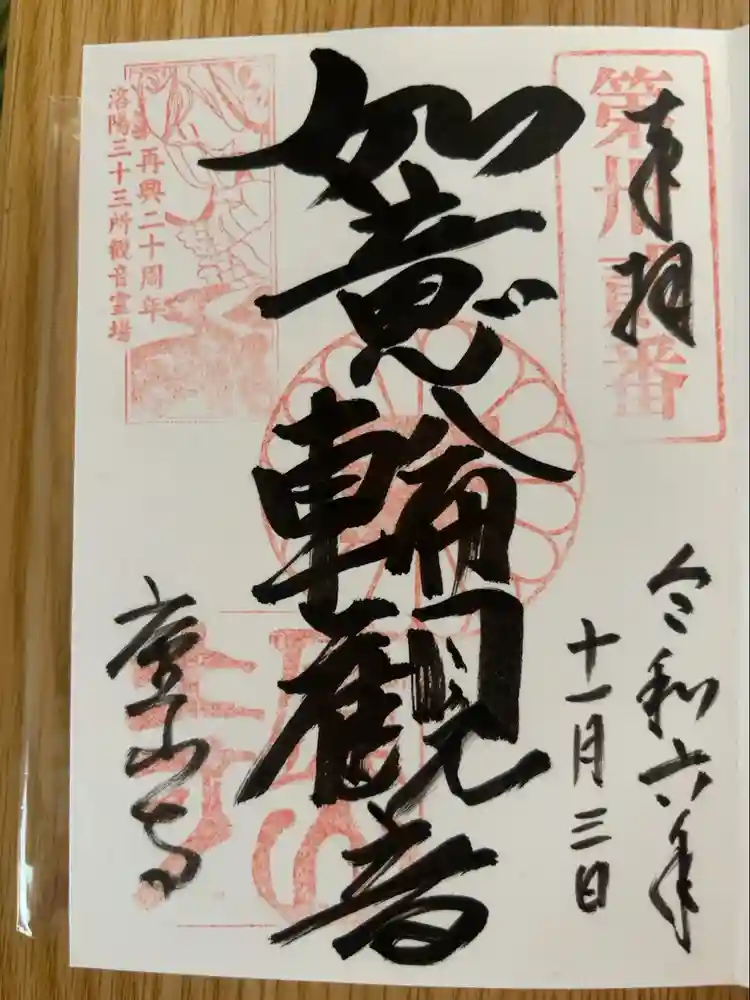 奉拝
第卅貳番
令和六年
十一月三日
如意輪観音
廬山寺
再興二十周年
洛陽三十三所観音霊場